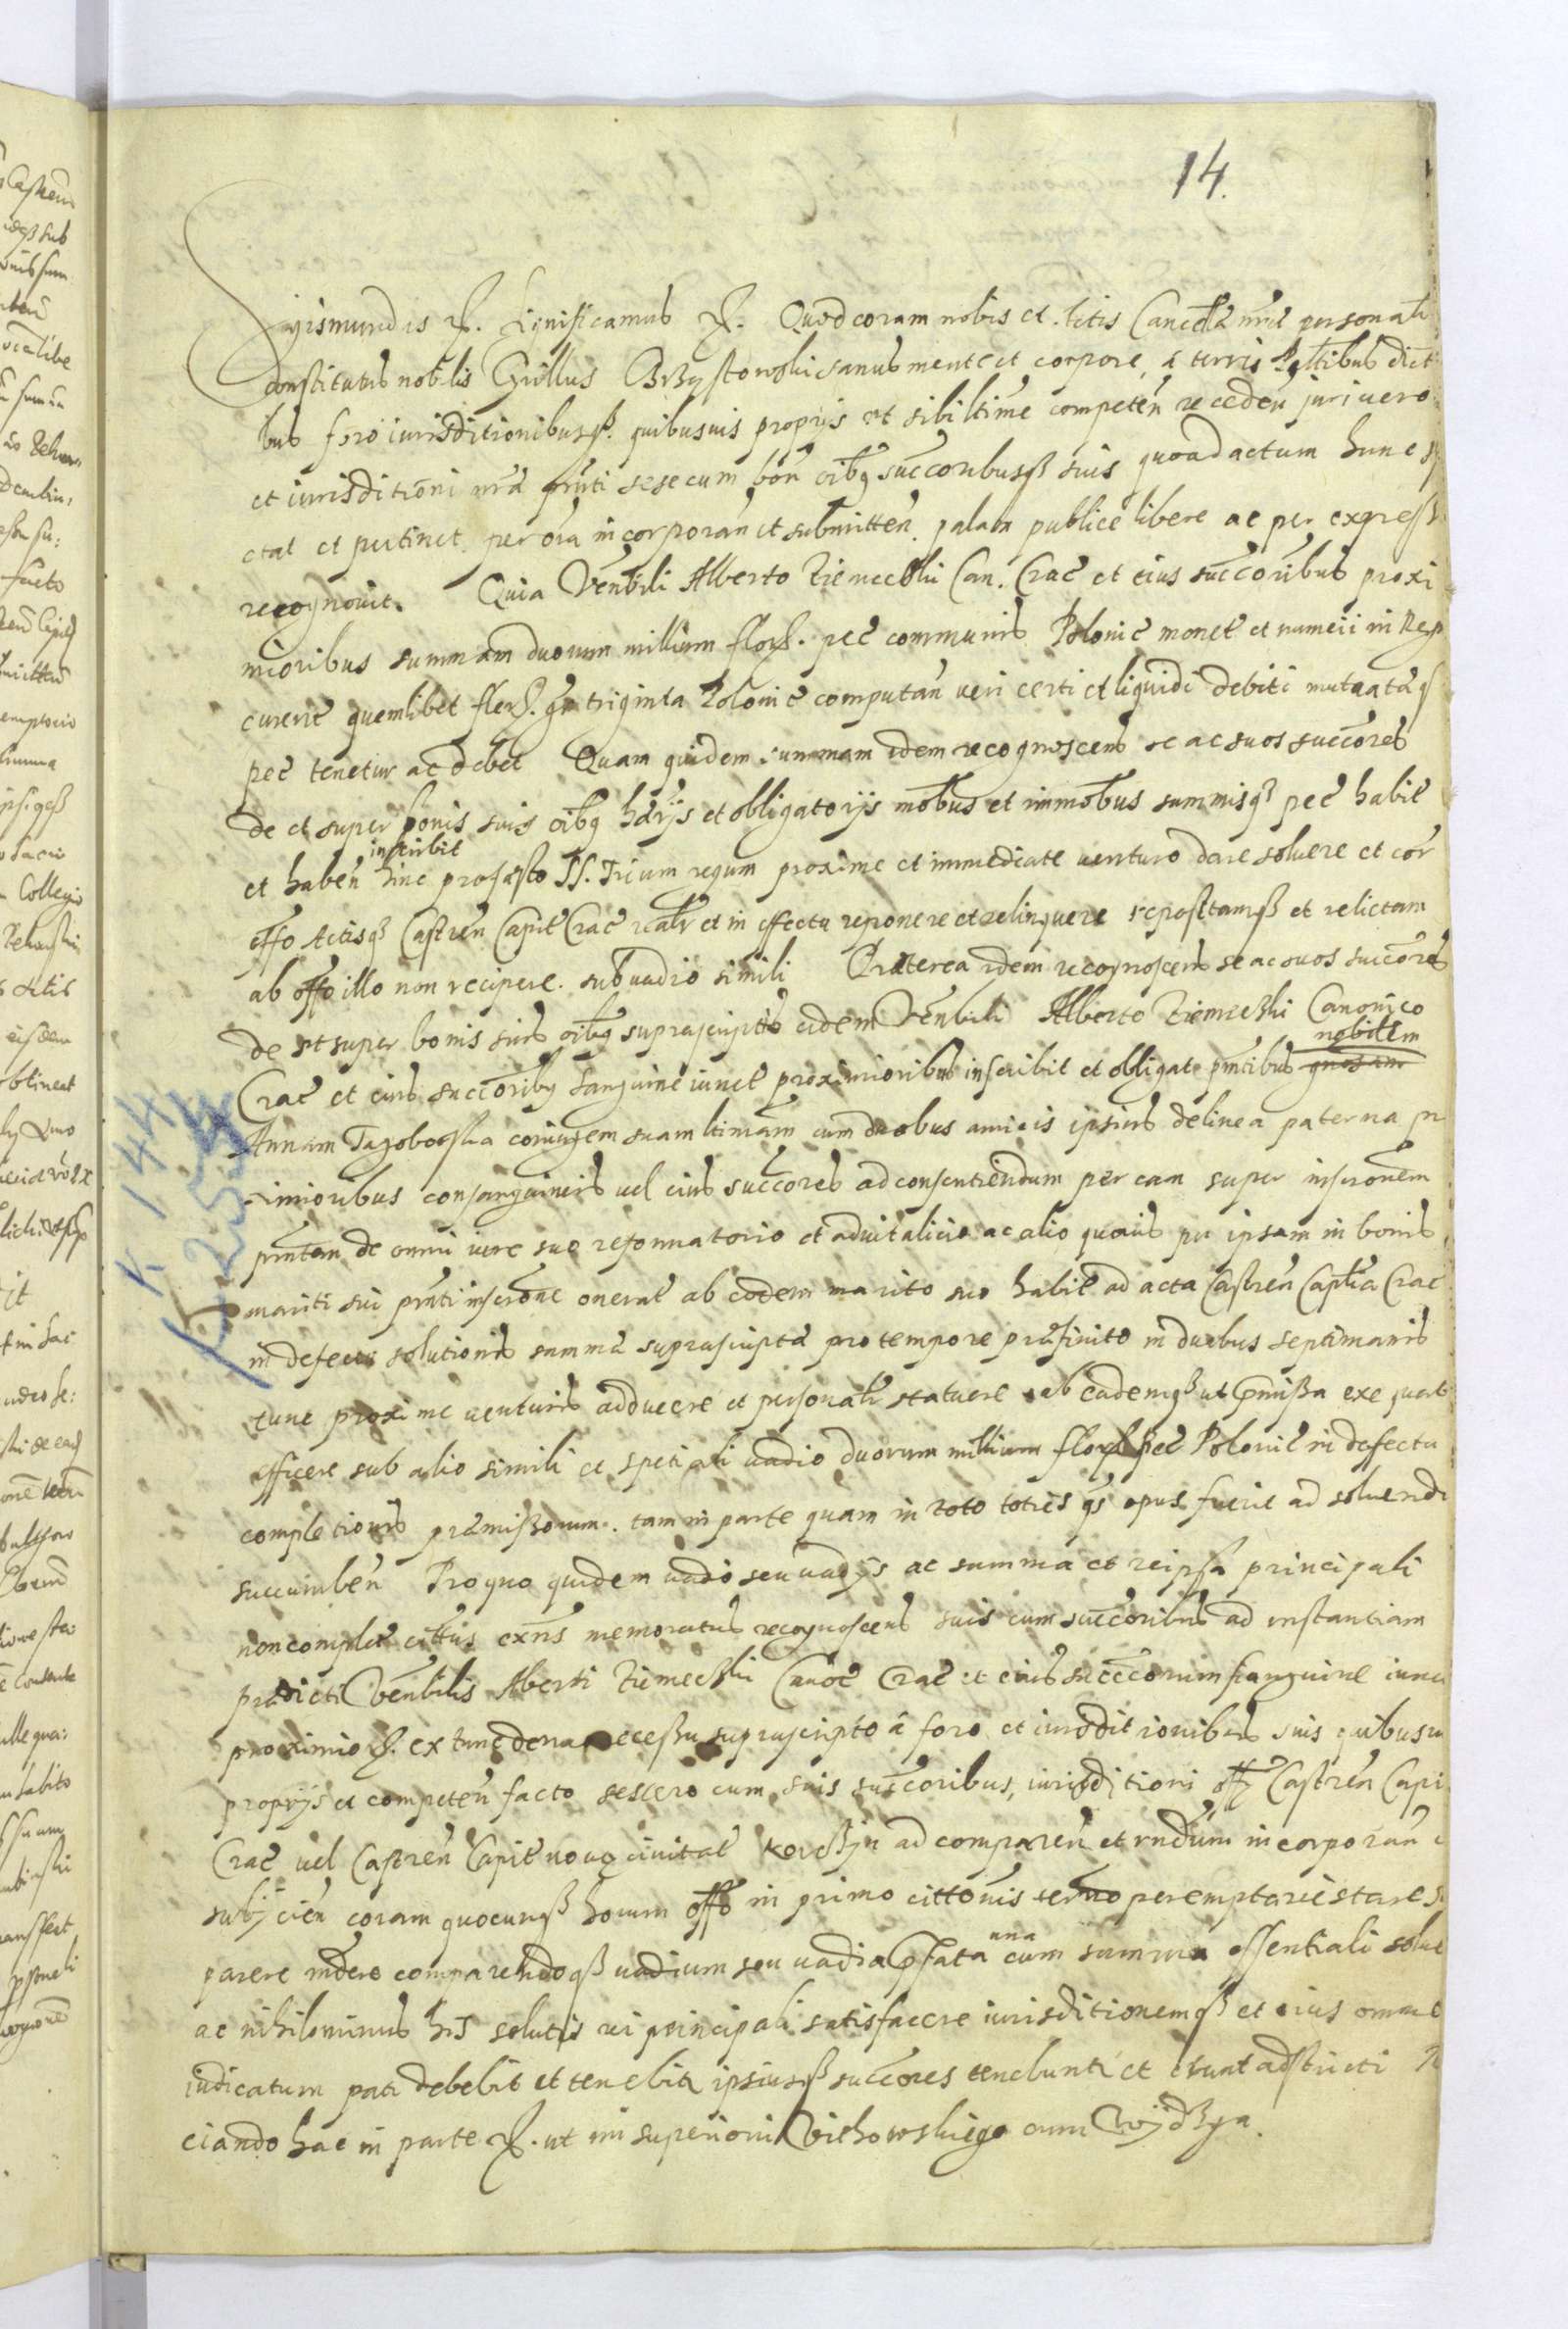 14.
Sigismundus etc. Significamus etc. Quod coram nobis et actis Cancellae nrae personalr
constitutus nobilis Brzystowski sanus mente et corpore, a terris
bus foro iurisditionibusqz. quibusuis proprijs et sibi ltime competen receden juri vero
et iurisditioni nrae pnti sese cum bon oibq succoribusqz suis quoad actum hunc
ctat et pertinet. per oia incorporan et submitten. palam publice libere ac per express
recognouit. Quia Venbili Alberto Ziemeczki Can. Crac et eius succoribus proxi
mioribus summam duorum millium flor. pec communis Polonic monet et numeri in Reg
curren quemlibet flor. per gr triginta Polonic computan veri certi et liquidi debiti mutuatq
pec tenetur ac debet Quam quidem summam idem recognoscens se ac suos succores
de et super bonis suis oibq hdrijs et obligatorijs mobus et immobus summisqz pec habit
et haben inscribit hinc pro festo SS. Trium regum proxime et immediate venturo dare soluere et cor
offo Actisqz Castren Capit Crac realr et in effectu reponere et relinquere repositamqz et relictam
ab offo illo non recipere. sub vadio simili Praeterea idem recognoscens se ac suos succores
de et super bonis suis oibq suprascriptis eidem Venbili Alberto Ziemeczki Canonico
Crac et eius succoribq sanguine iunct proximioribus inscribit et obligat pntibus nobilem generosam
Annam coniugem suam ltimam cum duobus amicis ipsius de linea paterna pr
ximioribus consanguineis vel eius succores ad consentiendum per eam super inscronem
pntem de omni iure suo reformatorio et aduitalicio ac alio quouis per ipsam in bonis
mariti sui pnti inscrone onerat ab eodem marito suo habit ad acta Castren Captia Crac
in defectu solutionis summae suprascriptae pro tempore praefinito in duabus septimanis
tunc proxime venturis adducere et personalr statuere ab eademqz ut pmissa exequat
efficere sub alio simili et speciali vadio duorum millium flor pec Polonic in defectu
completionis praemissorum. tam in parte quam in toto toties qs opus fuerit ad soluendu
succumben Pro quo quidem vadio seu vadijs ac summa et re ipsa principali
non complet cittus exns memoratus recognoscens suis cum succoribus ad instantiam
praedicti Venbilis Alberti Ziemeczki Canoc Crac et eius succorum sanguine iunct
proximior. ex tunc de recessu suprascripto a foro et iurisditionibus suis quibusui
proprijs et competen facto sese vero cum suis succoribus, iurisditioni offy Castren Capi
Crac vel Castren Capit nouae ciuitat Korczyn ad comparen et rndum incorporan
subijcien coram quocunqz horum offo in primo cittonis termo peremptorie stare
parere rndere comparendoqz vadium seu vadia pfata una cum summa essentiali solue
ac nihilominus his solutis rei principali satisfacere iurisditionemqz et eius omne
iudicatum pati debebit et tenebit ipsiusqz succores tenebuntr et erunt adstricti
ciando hac in parte etc. ut in superiori Wichowskiego cum Wydzga.
K 144